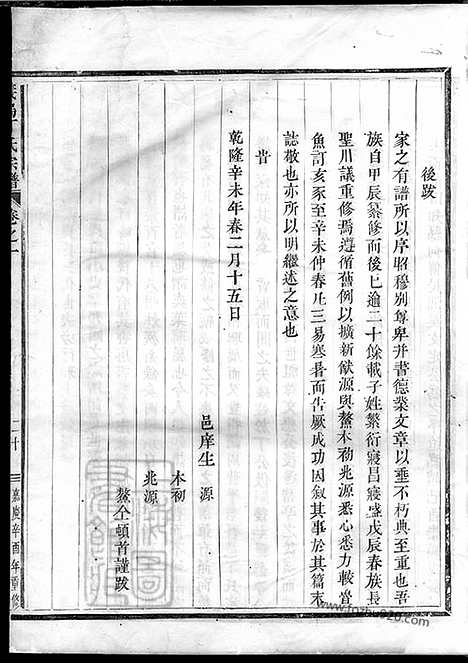 後跋
家之有譜所以序昭穆別尊卑幷書德業文章以垂不朽典至重也吾
族自甲辰纂修而後已逾二十餘載子姓繁衍寖昌寖盛戊辰春族長
聖川議重修焉遵循舊例以擴新猷源與鰲木初兆源悉心悉力較魯
魚訂亥豕至辛未仲春凡三易寒暑而告厥成功因叙其事於其篇末
誌敬也亦所以明繼述之意也
旹
乾隆辛未年春二月十五日
邑庠生 源
木初
兆源
鰲仝頓首謹跋
氏宗譜 卷之一 二十 嘉慶辛酉年重修
www.fozhu920.com